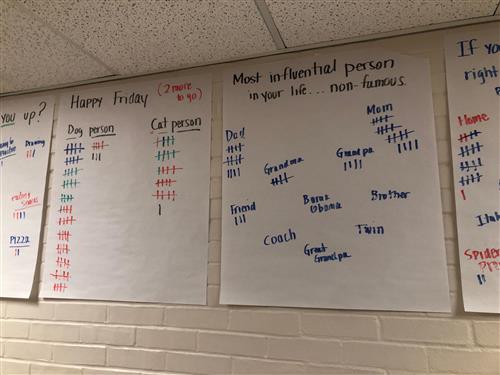 you up?
Drawing
eating
snacks
Pizza
Happy Friday (2 more
to go)
Dog person
Cat person
Most influential person
in your life... non-famous.
Dad
Mom
Grandma
Grandpa
Friend
Barak
Obama
Brother
Coach
Twin
Great
Grandpa
If you
right
Home